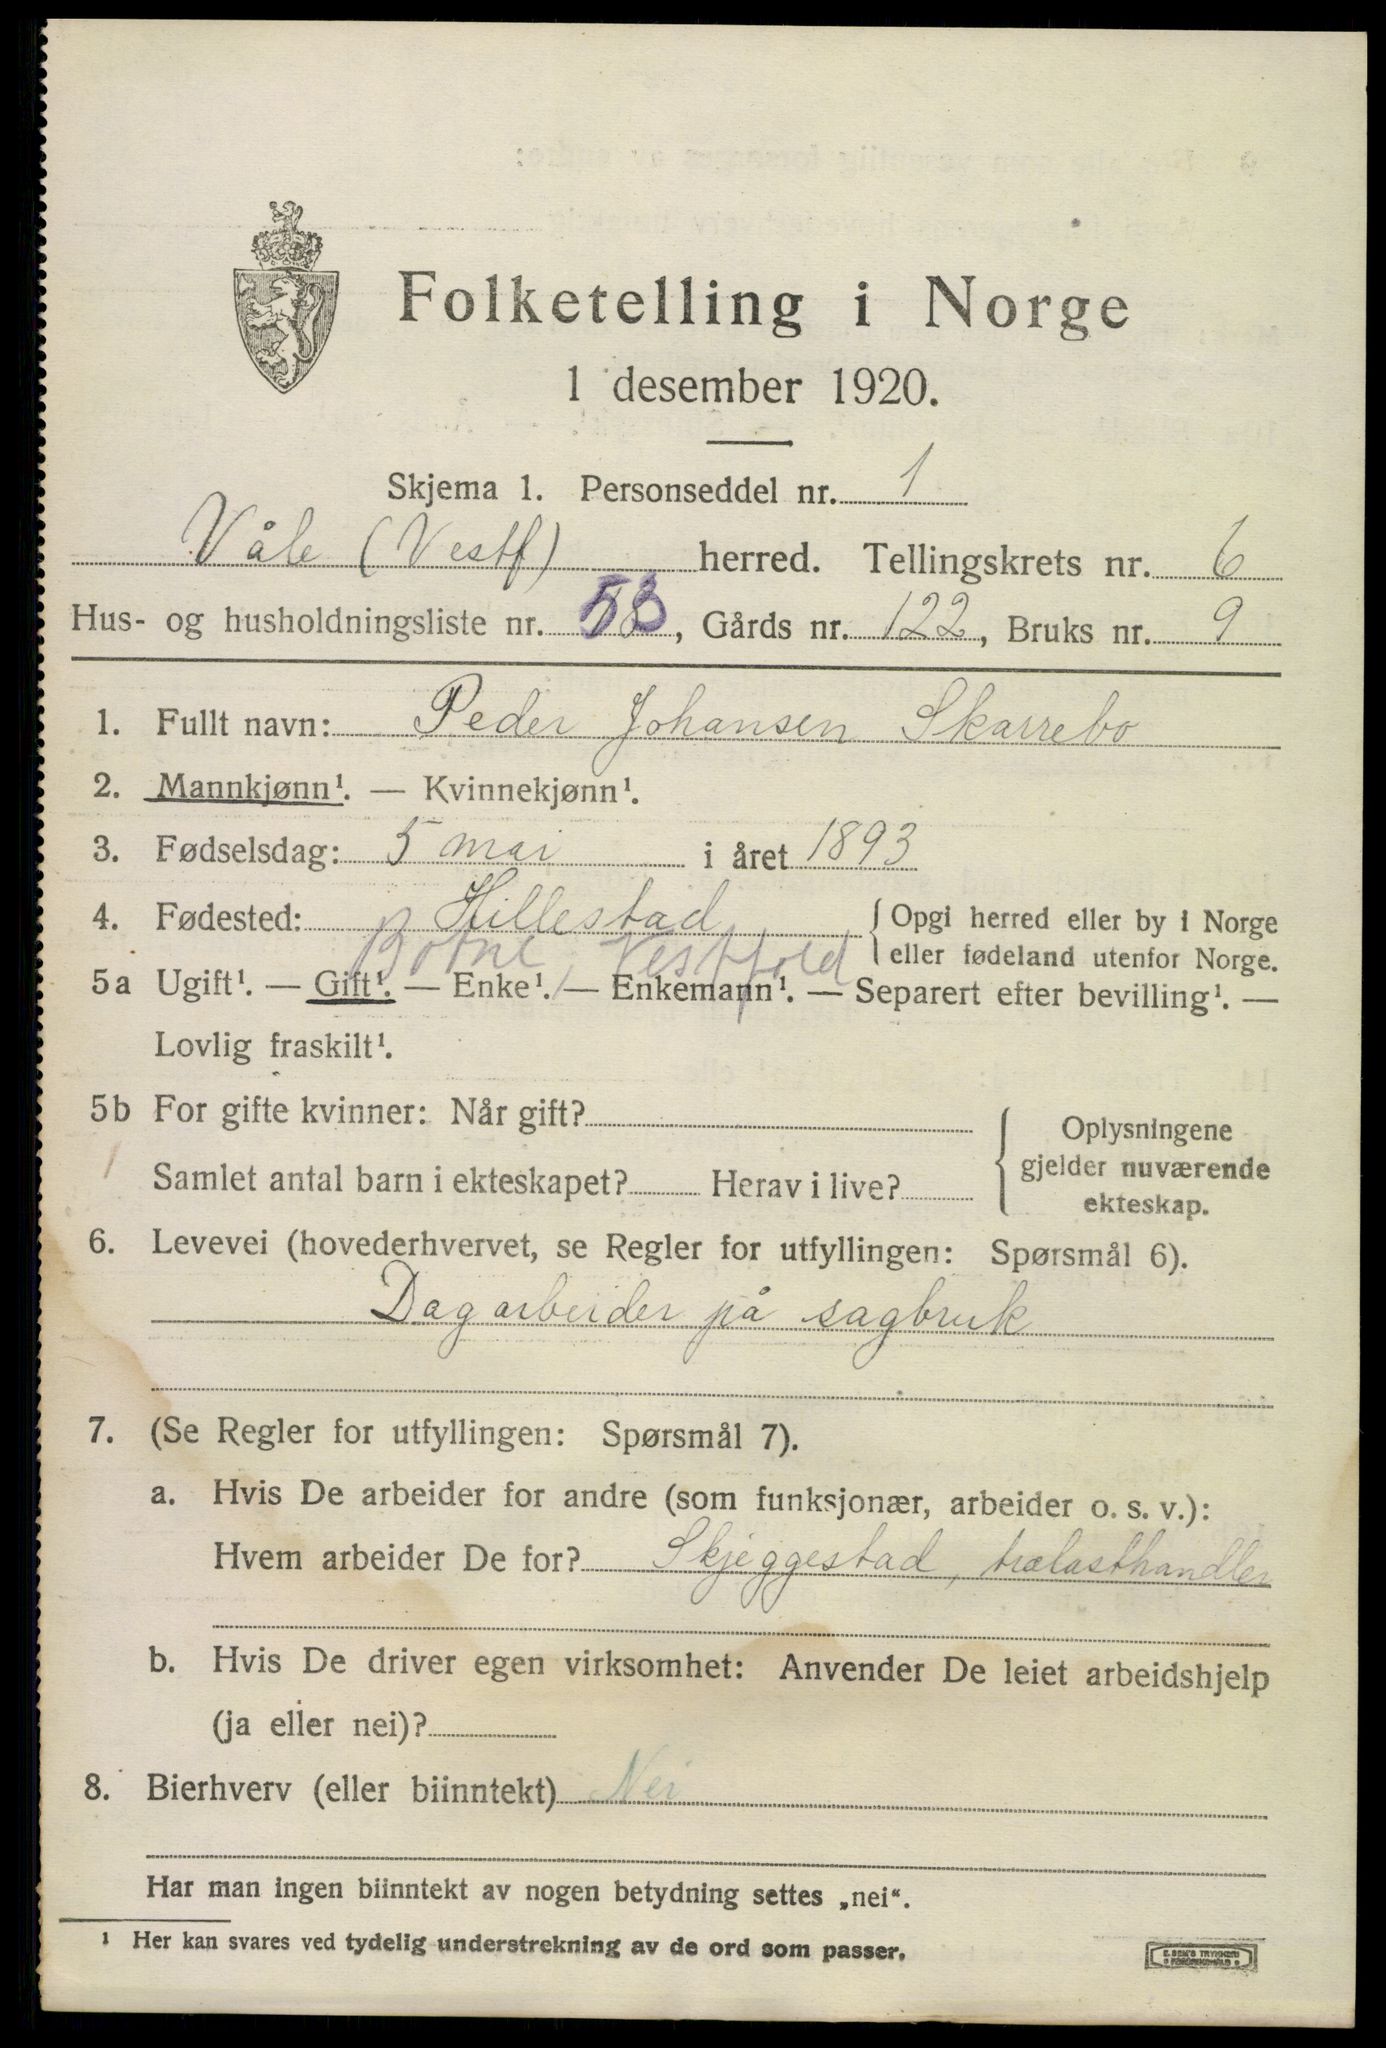 Folketelling i Norge
1 desember 1920.
Skjema 1. Personseddel nr. 1
Våle (Vestf) herred. Tellingskrets nr. 6
Hus- og husholdningsliste nr. 53, Gårds nr. 122, Bruks nr. 9
1. Fullt navn: Peder Johansen Skarrebo
2. Mannkjønn¹. — Kvinnekjønn¹.
3. Fødselsdag: 5 mai i året 1893
4. Fødested: Hillestad { Opgi herred eller by i Norge
Botne, Vestfold eller fødeland utenfor Norge.
5a Ugift¹. — Gift¹. — Enke¹. — Enkemann¹. — Separert efter bevilling¹. —
Lovlig fraskilt¹.
5b For gifte kvinner: Når gift? { Oplysningene
gjelder nuværende
1 Samlet antal barn i ekteskapet? Herav i live?
ekteskap.
6. Levevei (hovederhvervet, se Regler for utfyllingen: Spørsmål 6).
Dagarbeider på sagbruk
7. (Se Regler for utfyllingen: Spørsmål 7).
a. Hvis De arbeider for andre (som funksjonær, arbeider o. s. v.):
Hvem arbeider De for? Skjeggestad, trælasthandler
b. Hvis De driver egen virksomhet: Anvender De leiet arbeidshjelp
(ja eller nei)?
8. Bierhverv (eller biinntekt) Nei
Har man ingen biinntekt av nogen betydning settes „nei“.
¹ Her kan svares ved tydelig understrekning av de ord som passer.